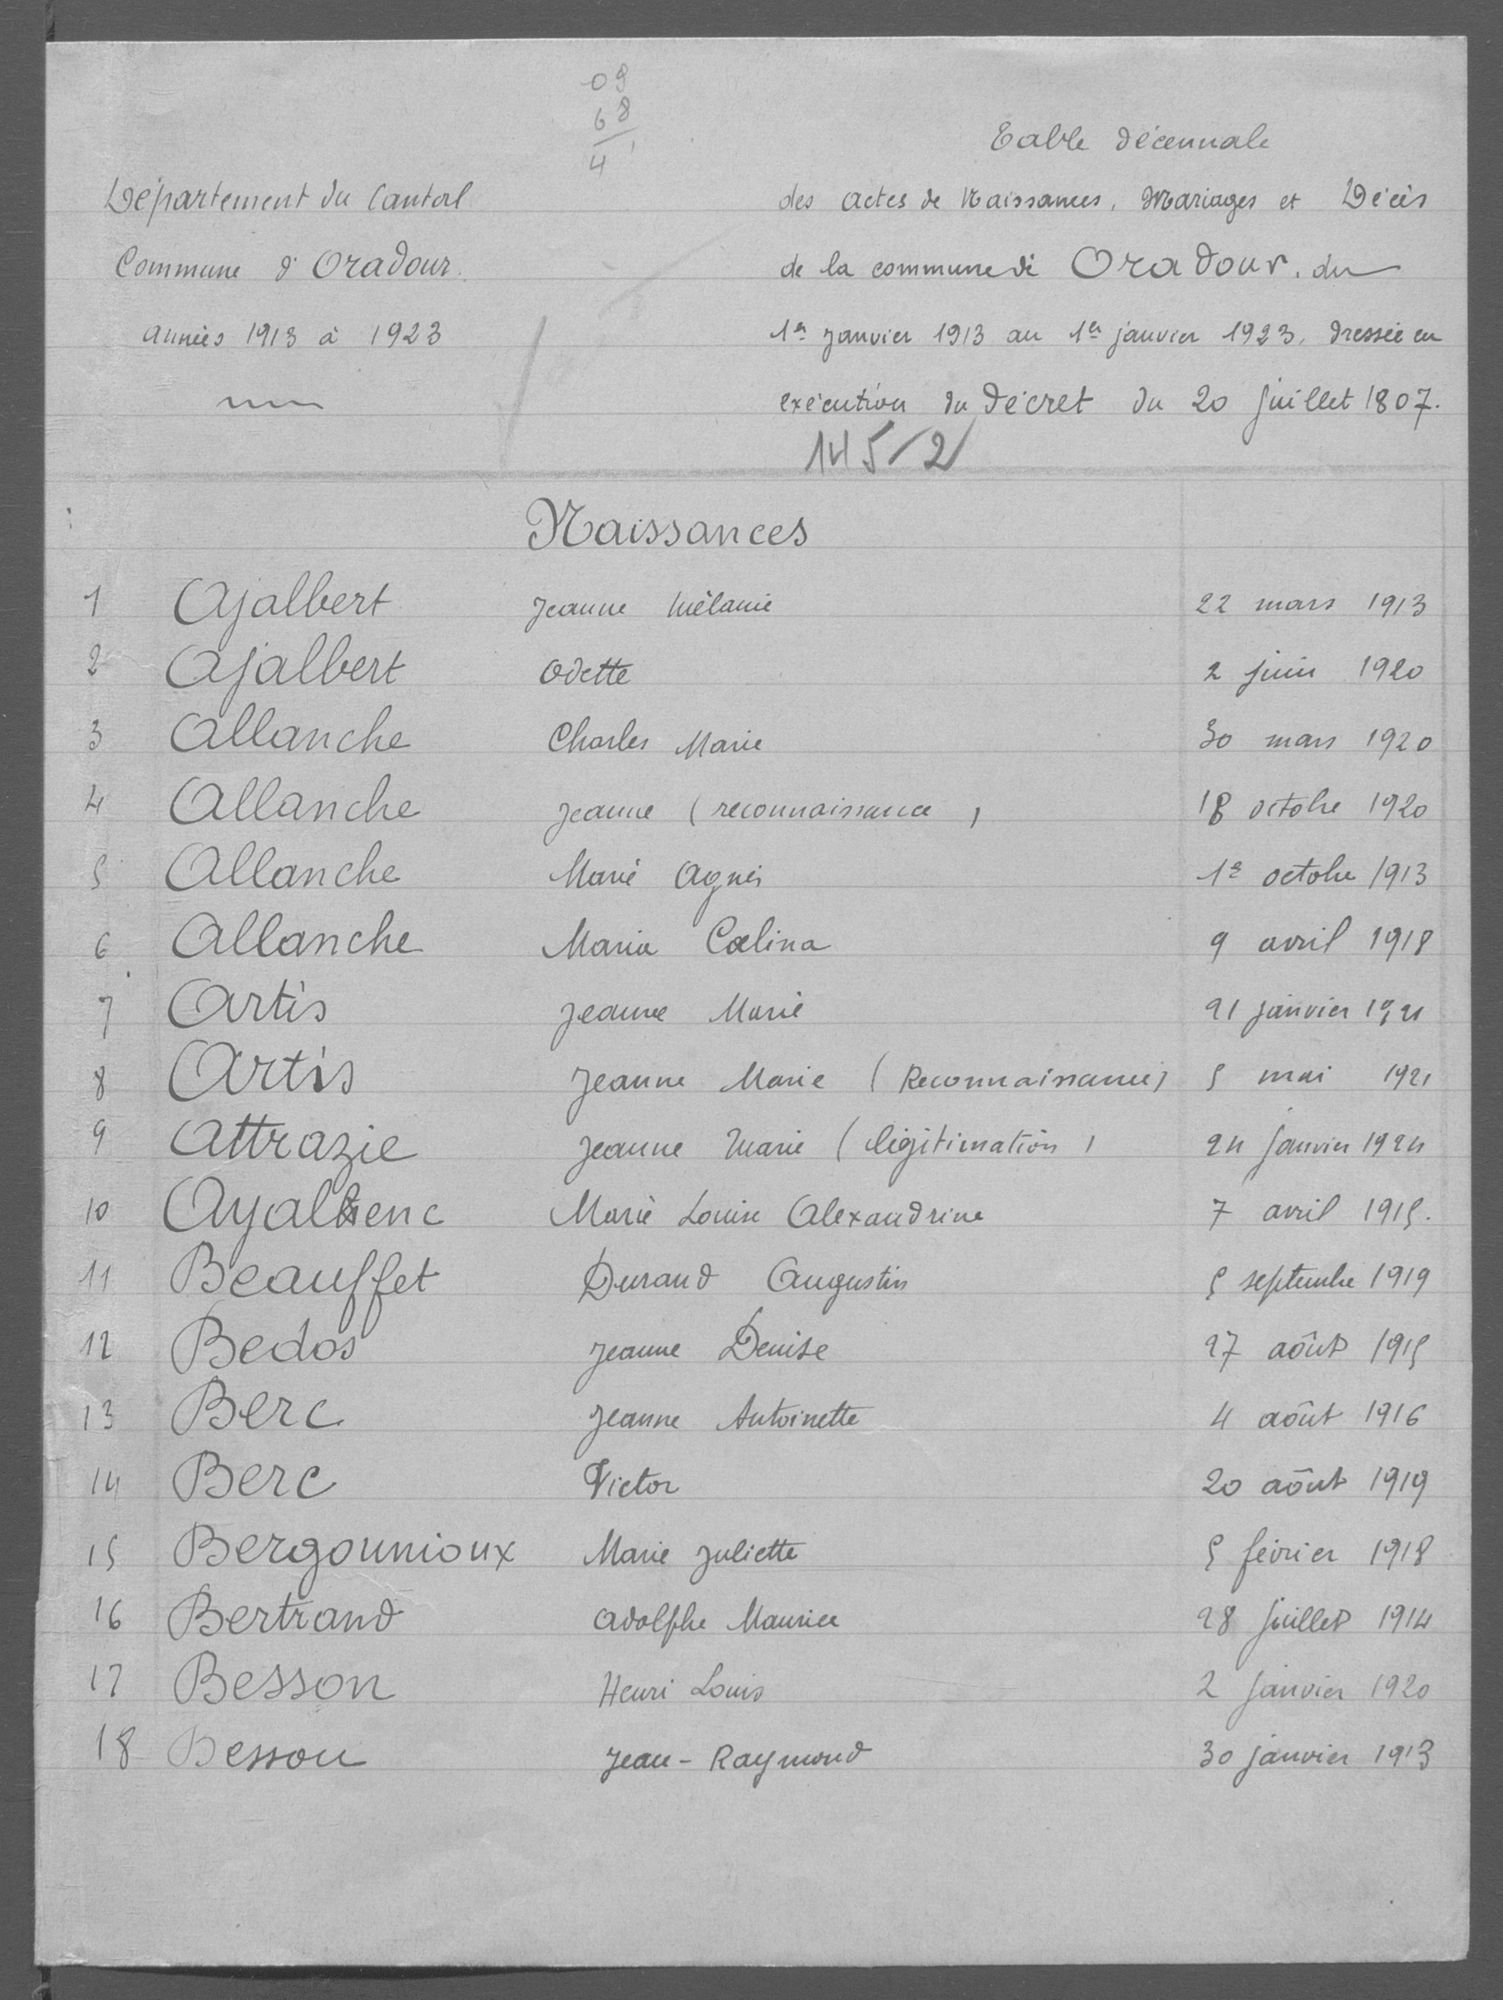 09
68
4
Table décennale
Département du Cantal
des actes de Naissances, Mariages et Décès
Commune d'Oradour
de la commune de Oradour, du
années 1913 à 1923
1er janvier 1913 au 1er janvier 1923, dressée en
exécution du décret du 20 juillet 1807.
145/2
Naissances
1 Ajalbert Jeanne Mélanie 22 mars 1913
2 Ajalbert Odette 2 juin 1920
3 Allanche Charles Marie 30 mars 1920
4 Allanche Jeanne (reconnaissance) 18 octobre 1920
5 Allanche Marie Agnès 1er octobre 1913
6 Allanche Maria Cœlina 9 avril 1918
7 Artis Jeanne Marie 21 janvier 1921
8 Artis Jeanne Marie (Reconnaissance) 5 mai 1921
9 Attrazie Jeanne Marie (légitimation) 24 janvier 1924
10 Marie Louise Alexandrine 7 avril 1915.
11 Beauffet Durand Augustin 5 septembre 1919
12 Bedos Jeanne Denise 27 août 1915
13 Berc Jeanne Antoinette 4 août 1916
14 Berc Victor 20 août 1919
15 Bergounioux Marie Juliette 5 février 1918
16 Bertrand Adolphe Maurice 28 juillet 1914
17 Besson Henri Louis 2 janvier 1920
18 Besson Jean-Raymond 30 janvier 1913